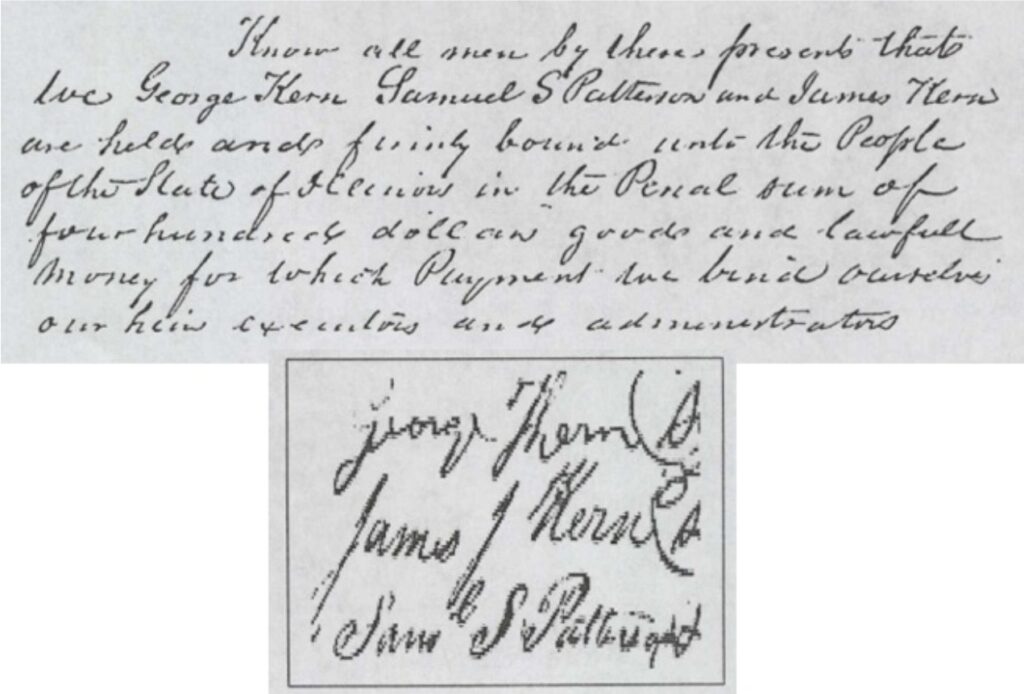 Know all men by these presents that
we George Kern Samuel S Patterson and James Kern
are held and firmly bound unto the People
of the State of Illinois in the Penal sum of
four hundred dollars good and lawfull
money for which Payment we bind ourselves
our heirs executors and administrators
George Kern (S
James J Kern (S
Saml S Patterson